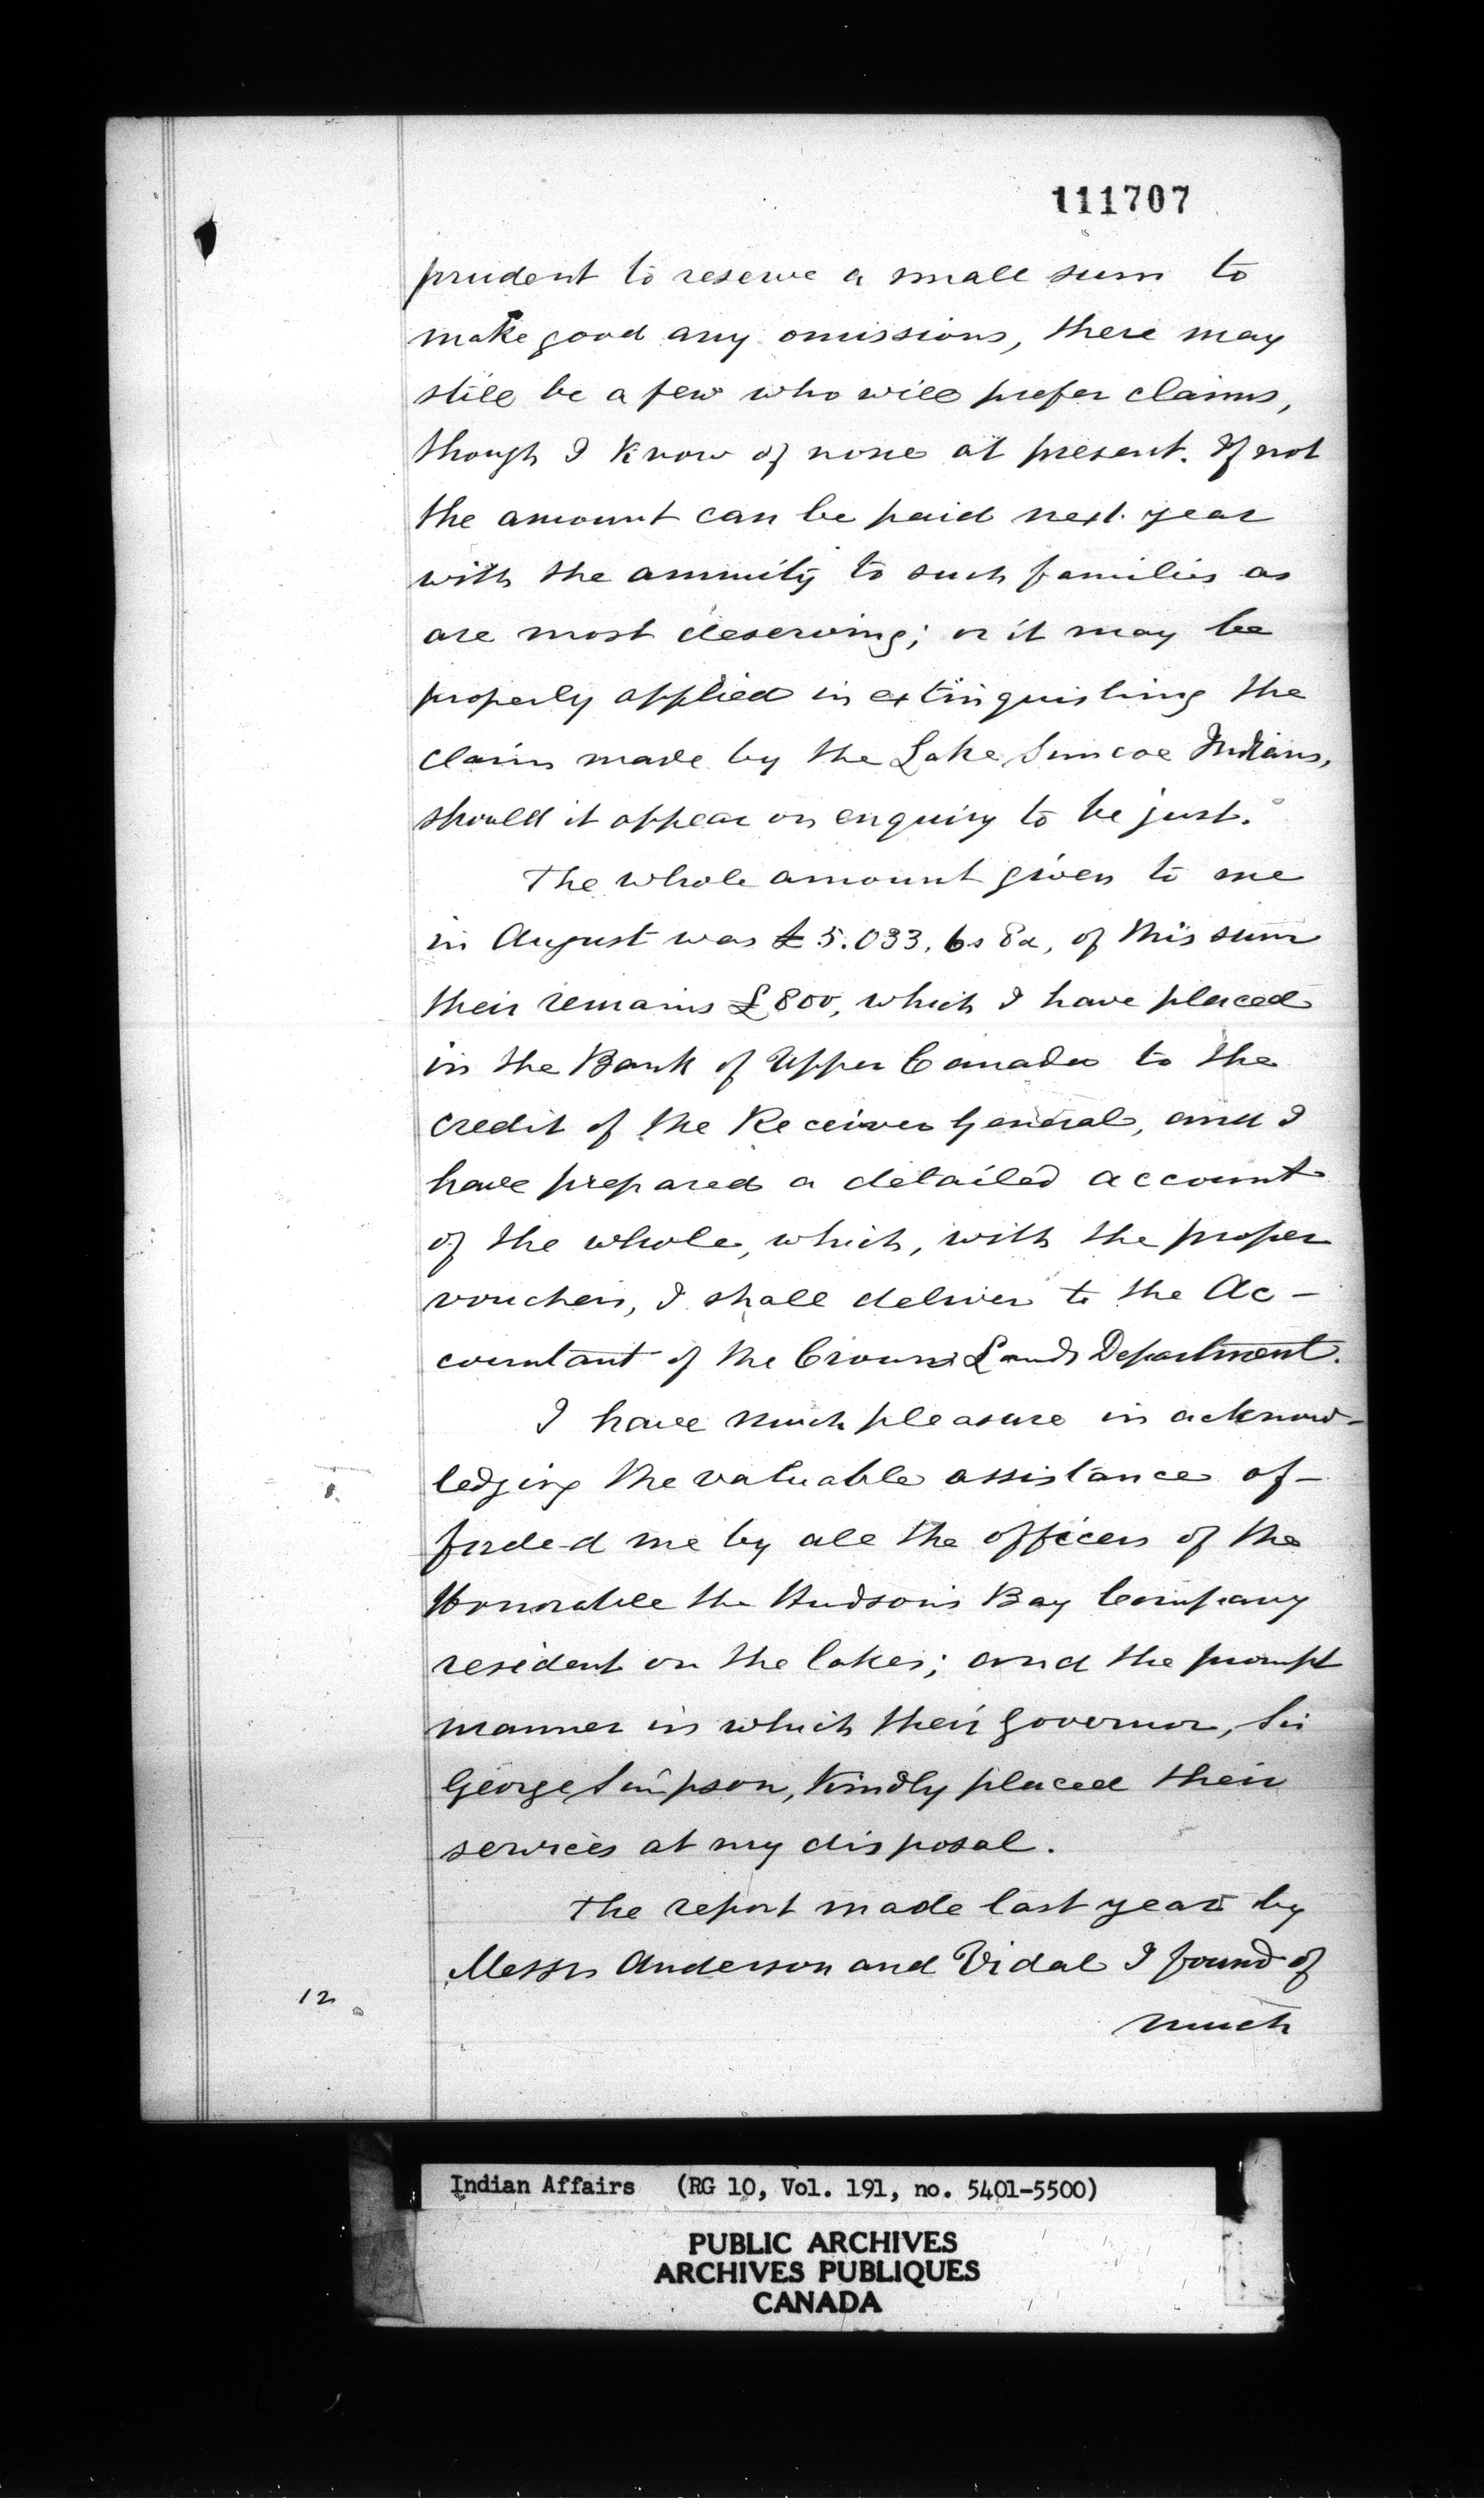 111707
prudent to reserve a small sum to
make good any omissions, there may
still be a few who will prefer claims,
though I know of none at present. If not
the amount can be paid next year
with the annuity to such families as
are most deserving; or it may be
properly applied in extinguishing the
claim made by the Lake Simcoe Indians,
should it appear on enquiry to be just.
The whole amount given to me
in August was £5.033.6s 8d, of this sum
their remains £800, which I have placed
in the Bank of Upper Canada to the
credit of the Receiver General, and I
have prepared a detailed account
of the whole, which, with the proper
vouchers, I shall deliver to the Ac-
countant of the Crown Lands Department.
I have much pleasure in acknow-
ledging the valuable assistance af-
forded me by all the officers of the
Honorable the Hudson's Bay Company
resident on the lakes; and the prompt
manner in which their governor, Sir
George Simpson, kindly placed their
services at my disposal.
The report made last year by
Messrs Anderson and Vidal I found of
12
much
Indian Affairs (RG 10, Vol. 191, no. 5401-5500)
PUBLIC ARCHIVES
ARCHIVES PUBLIQUES
CANADA